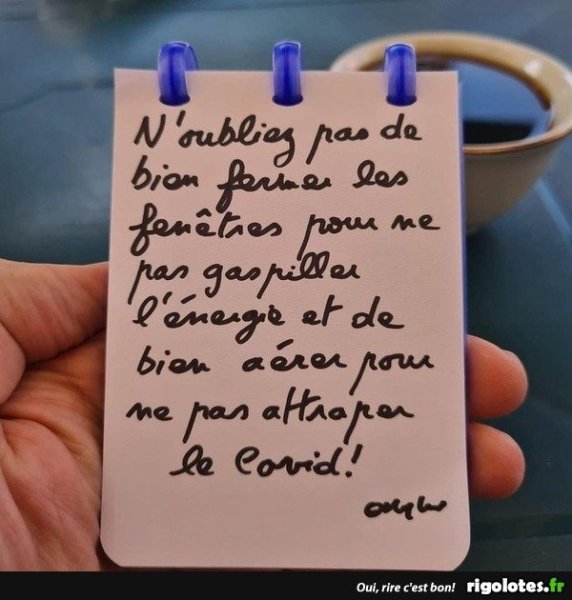 N'oubliez pas de
bien fermer les
fenêtres pour ne
pas gaspiller
l'énergie et de
bien aérer pour
ne pas attraper
le Covid!
Oui, rire c'est bon! rigolotes.fr